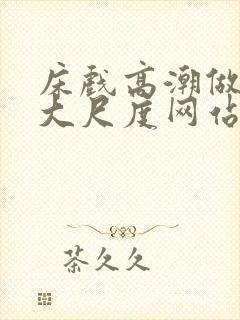 床戏高潮做
大尺度网佔
茶久久